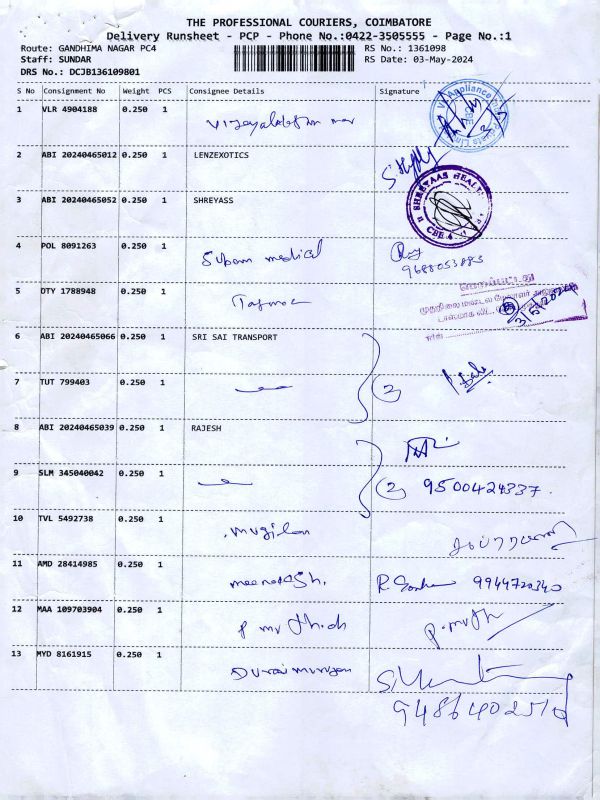 THE PROFESSIONAL COURIERS, COIMBATORE
Delivery Runsheet - PCP - Phone No.:0422-3505555 - Page No.:1
Route: GANDHIMA NAGAR PC4 RS No.: 1361098
Staff: SUNDAR RS Date: 03-May-2024
DRS No.: DCJB136109801
S No Consignment No Weight PCS Consignee Details Signature
1 VLR 4904188 0.250 1
2 ABI 20240465012 0.250 1 LENZEXOTICS
3 ABI 20240465052 0.250 1 SHREYASS
SHREYAAS HEALTH
CBE
4 POL 8091263 0.250 1 Subam medical
9688053883
5 DTY 1788948 0.250 1 Tasmac
3/5/2024
6 ABI 20240465066 0.250 1 SRI SAI TRANSPORT
7 TUT 799403 0.250 1 2
8 ABI 20240465039 0.250 1 RAJESH
9 SLM 345040042 0.250 1 2 9500424337
10 TVL 5492738 0.250 1 Mugilan
11 AMD 28414985 0.250 1 meenakshi. 9944720340
12 MAA 109703904 0.250 1 P
13 MYD 8161915 0.250 1 Duraimurugan